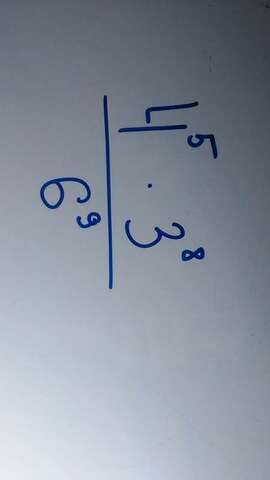 4⁵ · 3⁸
6⁹